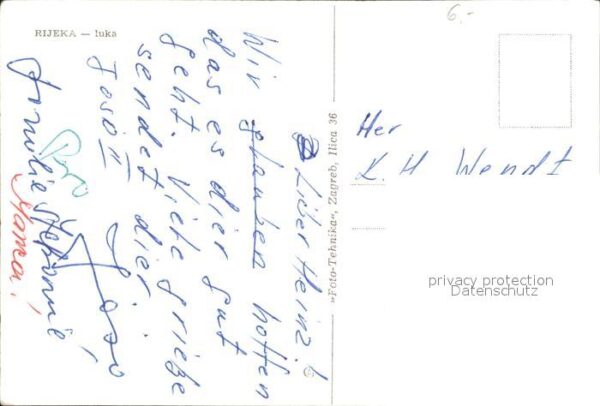 RIJEKA — luka
6.-
Liber Heinz!
Wir glauben hoffen
das es dier gut
geht. Viele grieße
sendet dier
Josō II
Joso
Familie
Mama!
"Foto-Tehnika", Zagreb, Ilica 36
Her
K. H Wendt
privacy protection
Datenschutz